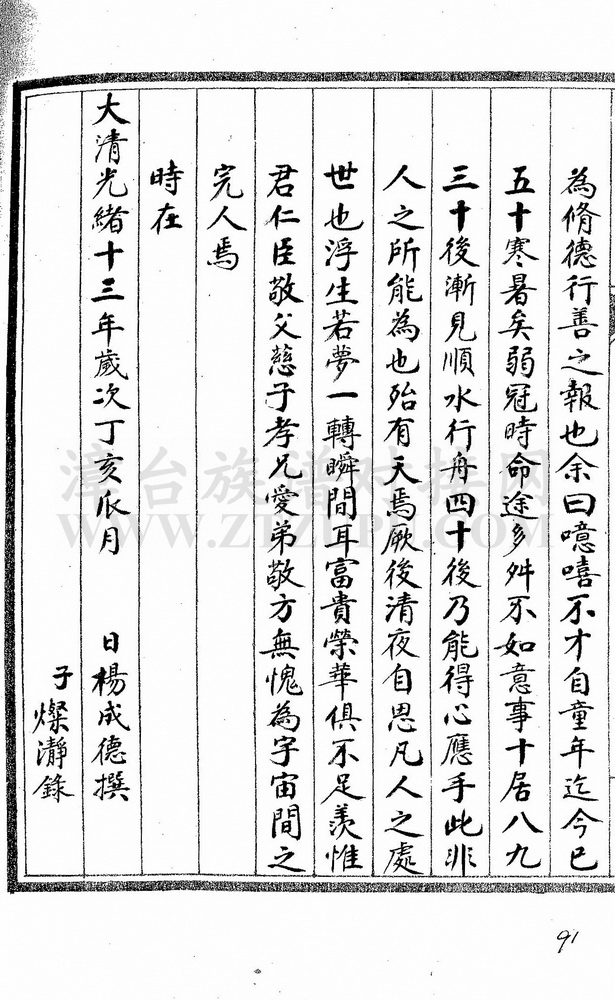 為脩德行善之報也余曰噫嘻不才自童年迄今已
五十寒暑矣弱冠時命途多舛不如意事十居八九
三十後漸見順水行舟四十後乃能得心應手此非
人之所能為也殆有天焉厥後清夜自思凡人之處
世也浮生若夢一轉瞬間耳富貴榮華俱不足羨惟
君仁臣敬父慈子孝兄愛弟敬方無愧為宇宙間之
完人焉
時在
大清光緒十三年歲次丁亥瓜月 日楊成德撰
子燦瀞錄
漳台族谱对接网
91